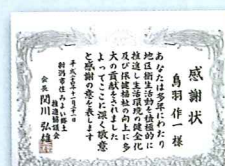 感謝状
鳥羽作一様
あなたは多年にわたり
地区衛生活動を積極的に
推進し生活環境の健全化
及び保健福祉の向上に多
大の貢献をされました
よってここに深く敬意
と感謝の意を表します
平成二十六年十一月二十一日
新潟市住みよい郷土
推進協議会
会長 関川弘雄